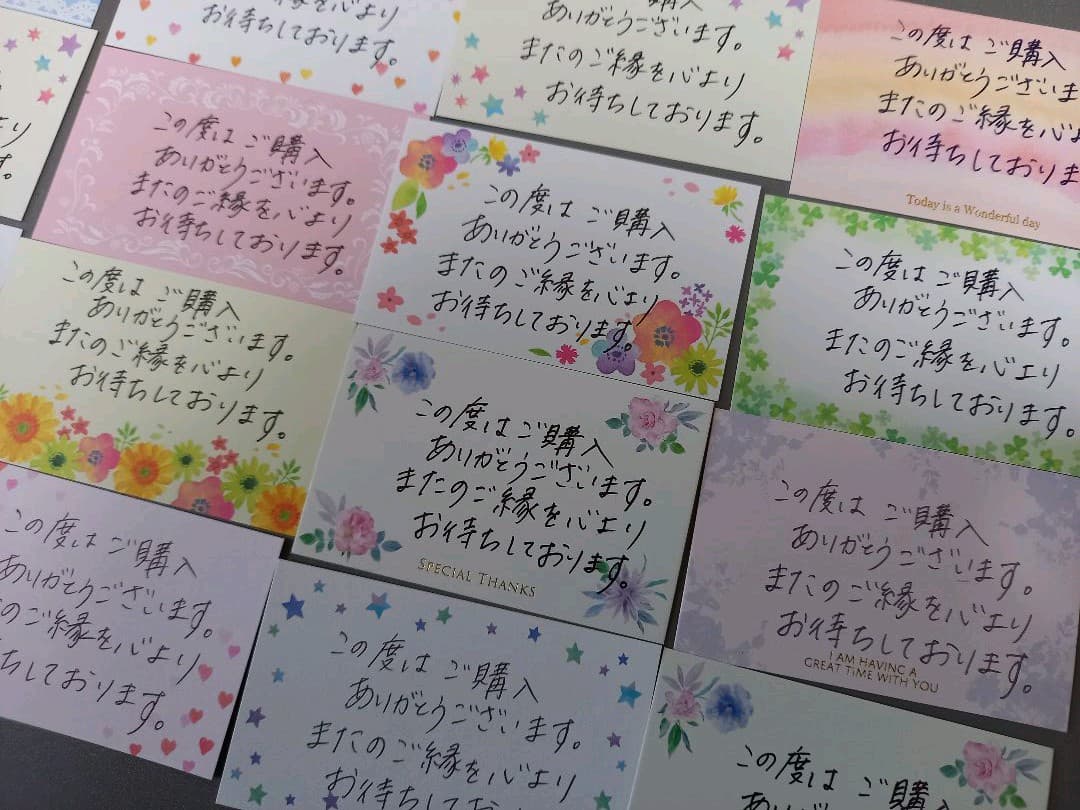 お待ちしております。
ありがとうございます。
またのご縁を心より
お待ちしております。
この度は ご購入
ありがとうございま
またのご縁を心よ
お待ちしておりま
Today is a Wonderful day
す。
この度は ご購入
ありがとうございます。
またのご縁を心より
お待ちしております。
この度は ご購入
ありがとうございます。
またのご縁を心より
お待ちしております。
この度は ご購入
ありがとうございます。
またのご縁を心より
お待ちしております。
この度は ご購入
ありがとうございます。
またのご縁を心より
お待ちしております。
この度は ご購入
ありがとうございます。
またのご縁を心より
お待ちしております。
SPECIAL THANKS
この度は ご購入
ありがとうございます。
またのご縁を心より
お待ちしております。
I AM HAVING A
GREAT TIME WITH YOU
この度は ご購入
ありがとうございます。
のご縁を心より
ちしております。
この度は ご購入
ありがとうございます。
またのご縁を心より
お待ちしており
この度は ご購入